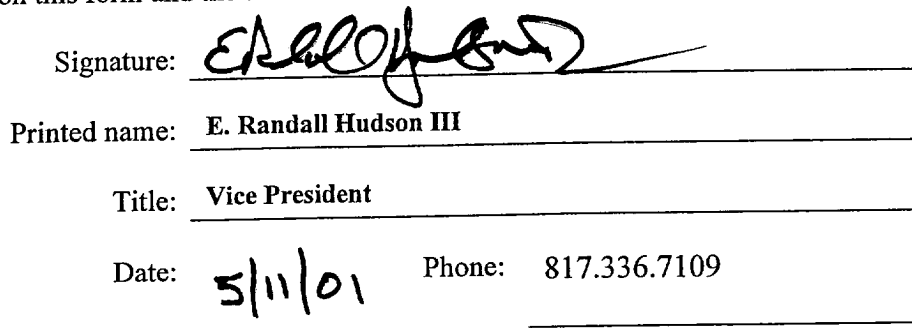 on this form and
Signature: E Randall Hudson
Printed name: E. Randall Hudson III
Title: Vice President
Date: 5/11/01 Phone: 817.336.7109